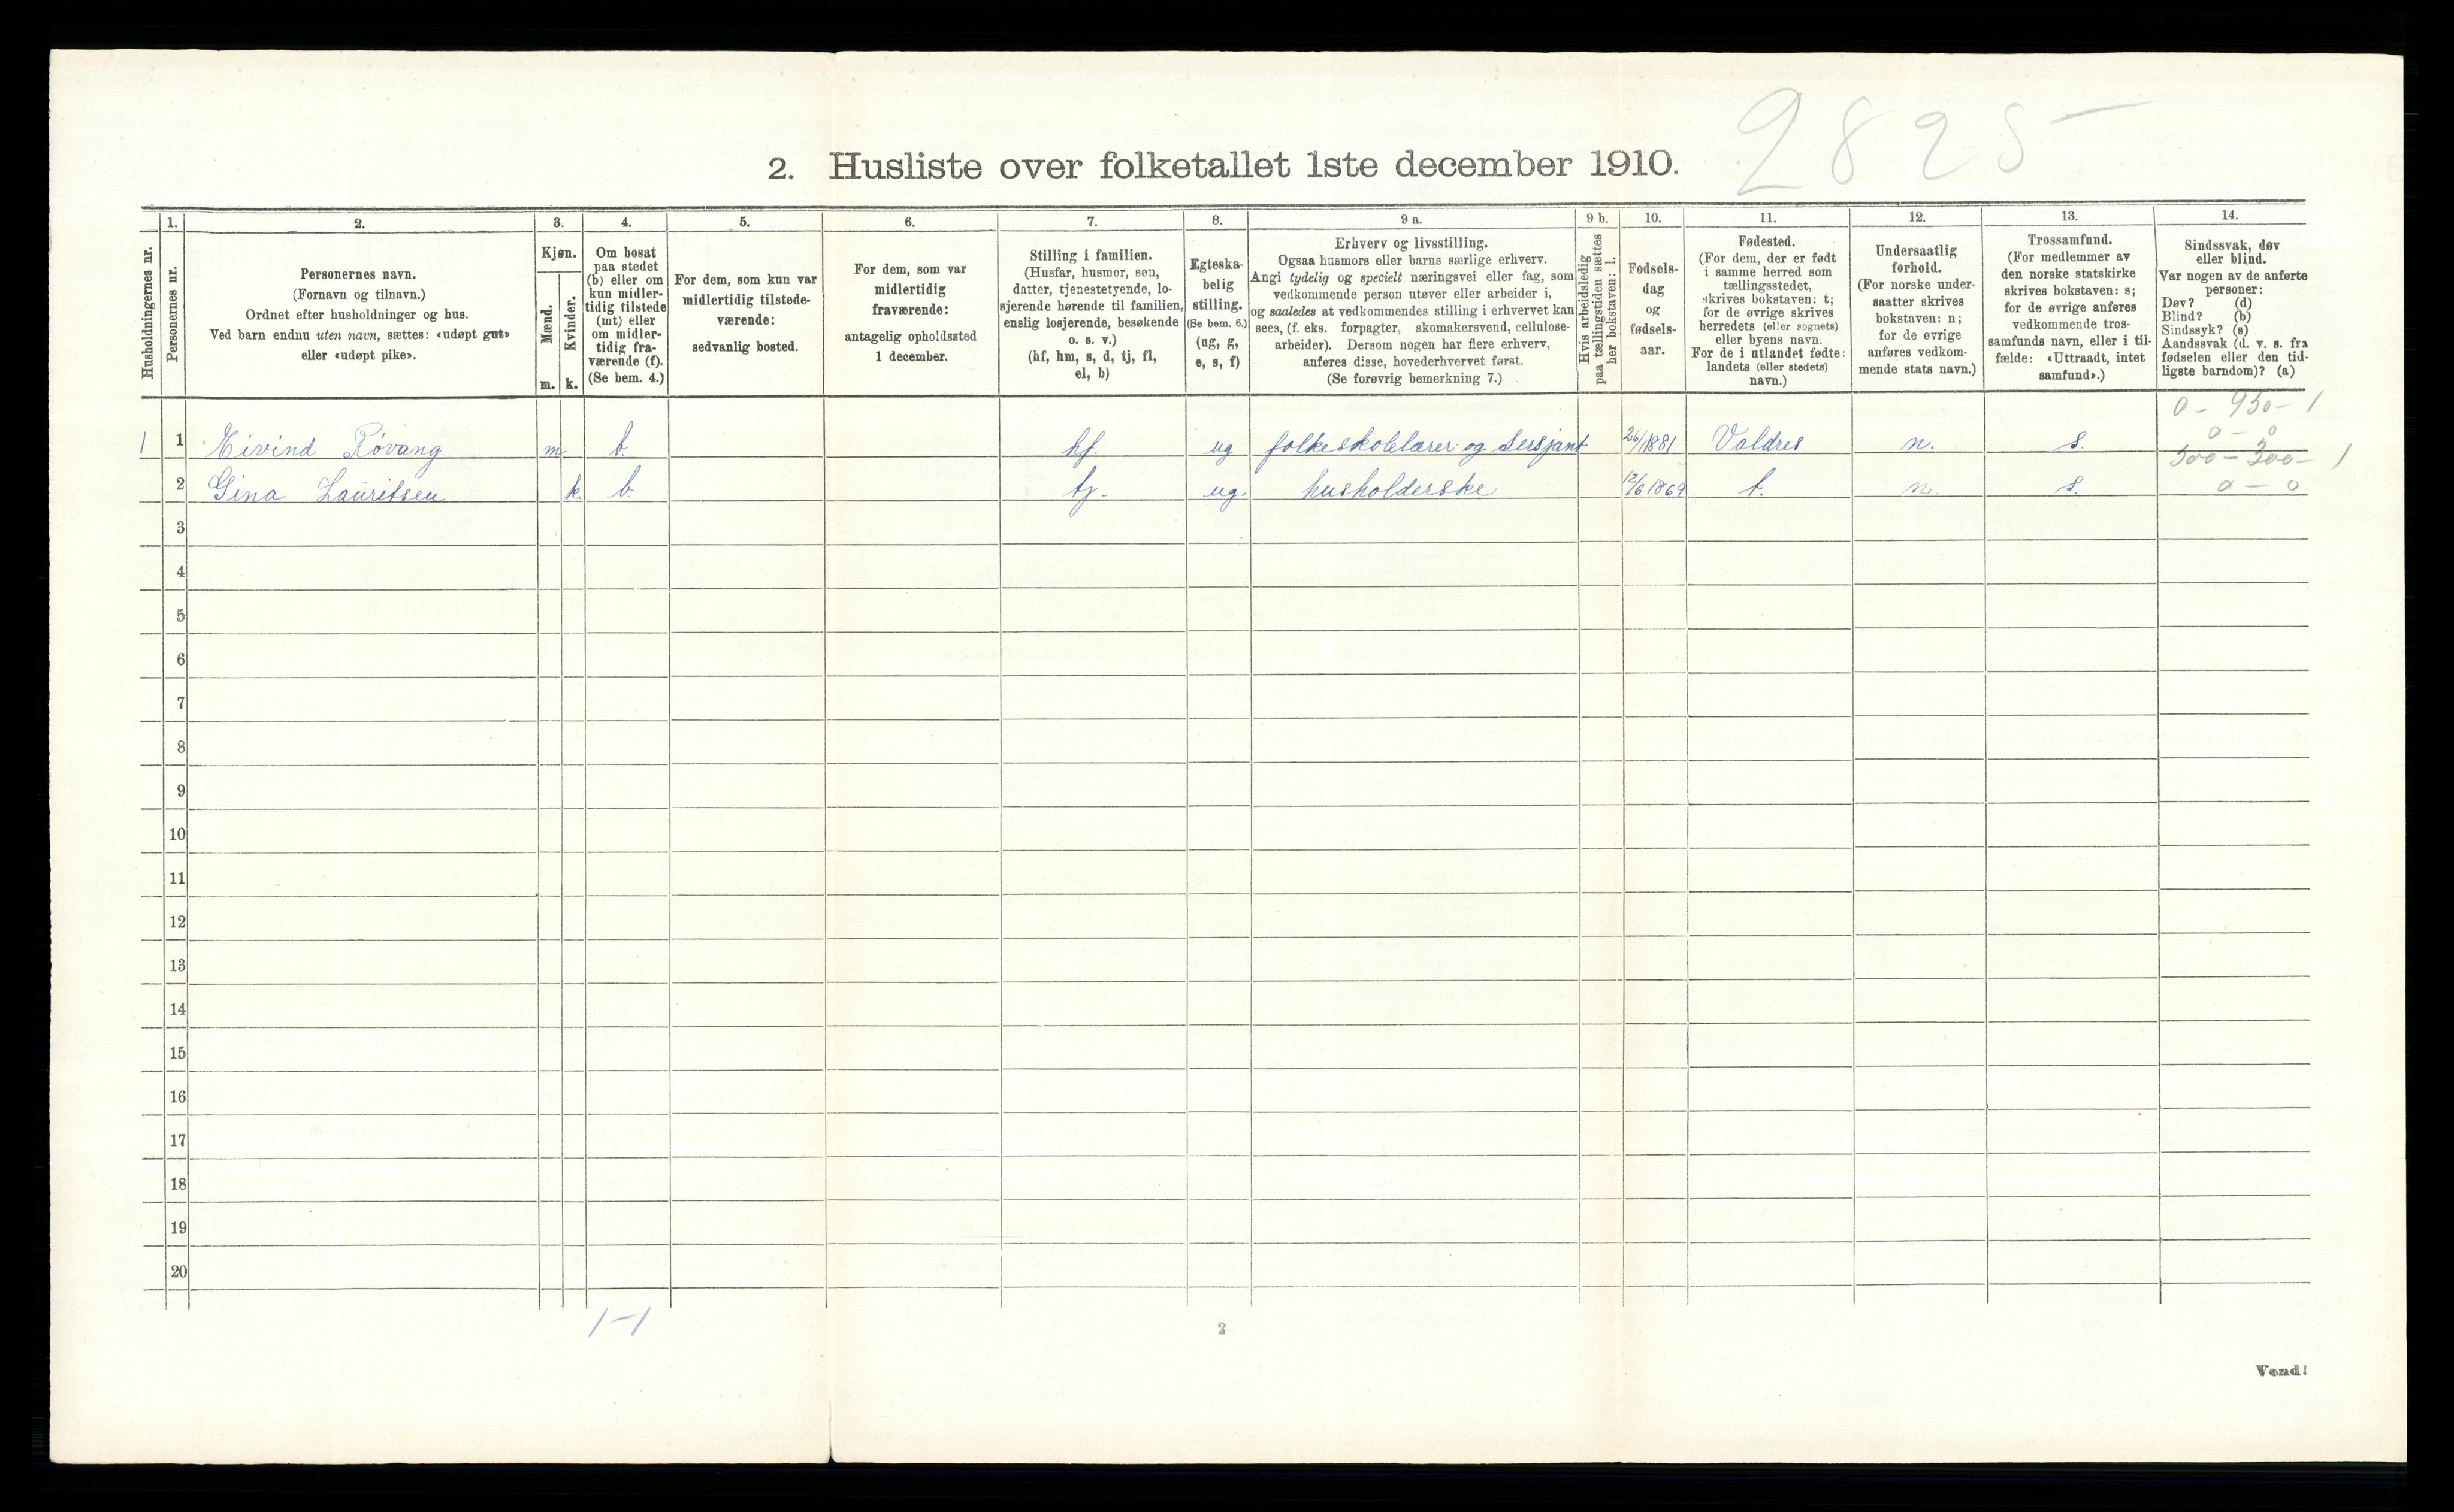 2825-
2. Husliste over folketallet 1ste december 1910.
Husholdningernes nr.
1.
Personernes nr.
2.
Personernes navn.
(Fornavn og tilnavn.)
Ordnet efter husholdninger og hus.
Ved barn endnu uten navn, sættes: «udøpt gut»
eller «udøpt pike».
3.
Kjøn.
Mænd.
m.
Kvinder.
k.
4.
Om bosat
paa stedet
(b) eller om
kun midler-
tidig tilstede
(mt) eller
om midler-
tidig fra-
værende (f).
(Se bem. 4.)
5.
For dem, som kun var
midlertidig tilstede-
værende:
sedvanlig bosted.
6.
For dem, som var
midlertidig
fraværende:
antagelig opholdssted
1 december.
7.
Stilling i familien.
(Husfar, husmor, søn,
datter, tjenestetyende, lo-
sjerende hørende til familien,
enslig losjerende, besøkende
o. s. v.)
(hf, hm, s, d, tj, fl,
el, b)
8.
Egteska-
belig
stilling.
(Se bem. 6.)
(ug, g,
e, s, f)
9 a.
Erhverv og livsstilling.
Ogsaa husmors eller barns særlige erhverv.
Angi tydelig og specielt næringsvei eller fag, som
vedkommende person utøver eller arbeider i,
og saaledes at vedkommendes stilling i erhvervet kan
sees, (f. eks. forpagter, skomakersvend, cellulose-
arbeider). Dersom nogen har flere erhverv,
anføres disse, hovederhvervet først.
(Se forøvrig bemerkning 7.)
9 b.
Hvis arbeidsledig
paa tællingstiden sættes
her bokstaven: l.
10.
Fødsels-
dag
og
fødsels-
aar.
11.
Fødested.
(For dem, der er født
i samme herred som
tællingsstedet,
skrives bokstaven: t;
for de øvrige skrives
herredets (eller sognets)
eller byens navn.
For de i utlandet fødte:
landets (eller stedets)
navn.)
12.
Undersaatlig
forhold.
(For norske under-
saatter skrives
bokstaven: n;
for de øvrige
anføres vedkom-
mende stats navn.)
13.
Trossamfund.
(For medlemmer av
den norske statskirke
skrives bokstaven: s;
for de øvrige anføres
vedkommende tros-
samfunds navn, eller i til-
fælde: «Uttraadt, intet
samfund».)
14.
Sindssvak, døv
eller blind.
Var nogen av de anførte
personer:
Døv? (d)
Blind? (b)
Sindssyk? (s)
Aandssvak (d. v. s. fra
fødselen eller den tid-
ligste barndom)? (a)
0 - 950 - 1
1 1 Eivind Røvang m b. hf. ug folkeskolelærer og Sersjant 26/1 1881 Valdres n. s. 0 - 0
500 - 300 - 1
2 Gina Lauritsen k. b. tj. ug. husholderske 12/6 1869 t. n. s. 0 - 0
3
4
5
6
7
8
9
10
11
12
13
14
15
16
17
18
19
20
1-1
2
Vend!